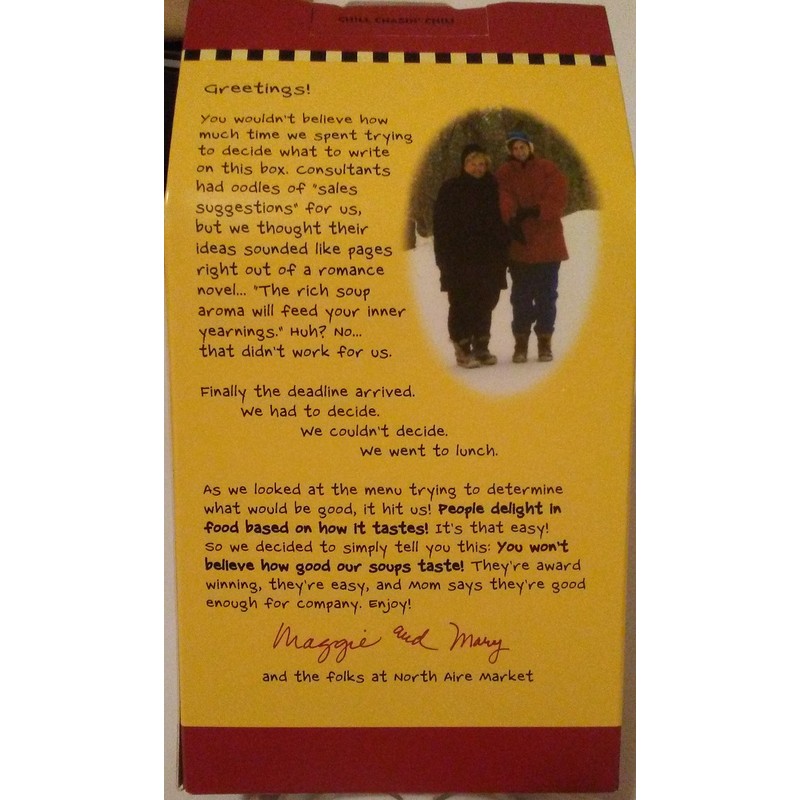 CHILL CHASIN' CHILI
Greetings!
You wouldn't believe how
much time we spent trying
to decide what to write
on this box. Consultants
had oodles of "sales
suggestions" for us,
but we thought their
ideas sounded like pages
right out of a romance
novel... "The rich soup
aroma will feed your inner
yearnings." Huh? No...
that didn't work for us.
Finally the deadline arrived.
We had to decide.
We couldn't decide.
We went to lunch.
As we looked at the menu trying to determine
what would be good, it hit us! People delight in
food based on how it tastes! It's that easy!
So we decided to simply tell you this: You won't
believe how good our soups taste! They're award
winning, they're easy, and Mom says they're good
enough for company. Enjoy!
Maggie and Mary
and the folks at North Aire Market